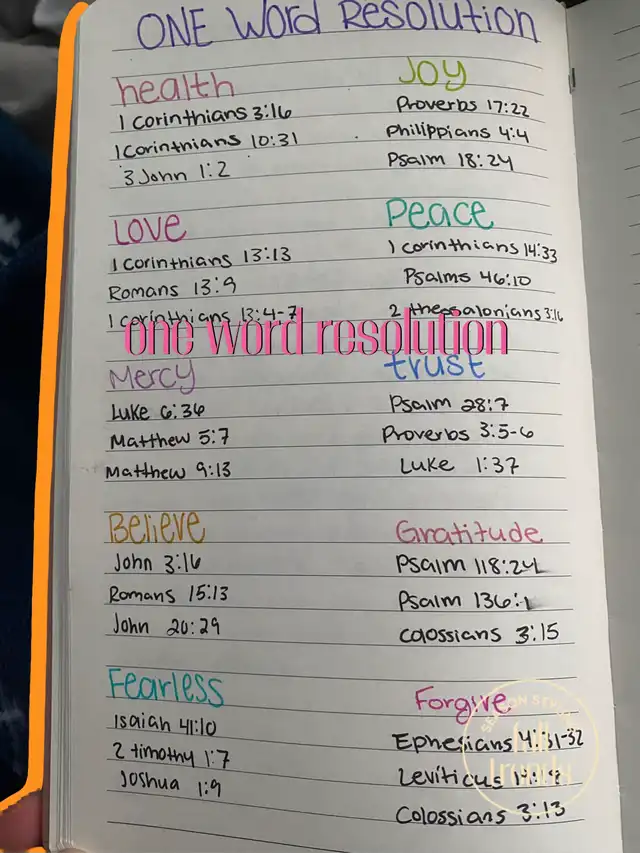 ONE Word Resolution
health
1 corinthians 3:16
1 Corinthians 10:31
3 John 1:2
Joy
Proverbs 17:22
Philippians 4:4
Psalm 18:24
Love
1 corinthians 13:13
Romans 13:9
1 corinthians 13:4-7
Peace
1 corinthians 14:33
Psalms 46:10
2 thessalonians 3:16
one word resolution
Mercy
Luke 6:36
Matthew 5:7
Matthew 9:13
trust
Psalm 28:7
Proverbs 3:5-6
Luke 1:37
Believe
John 3:16
Romans 15:13
John 20:29
Gratitude
Psalm 118:24
Psalm 136:1
Colossians 3:15
Fearless
Isaiah 41:10
2 timothy 1:7
Joshua 1:9
Forgive
Ephesians 4:31-32
Leviticus
Colossians 3:13